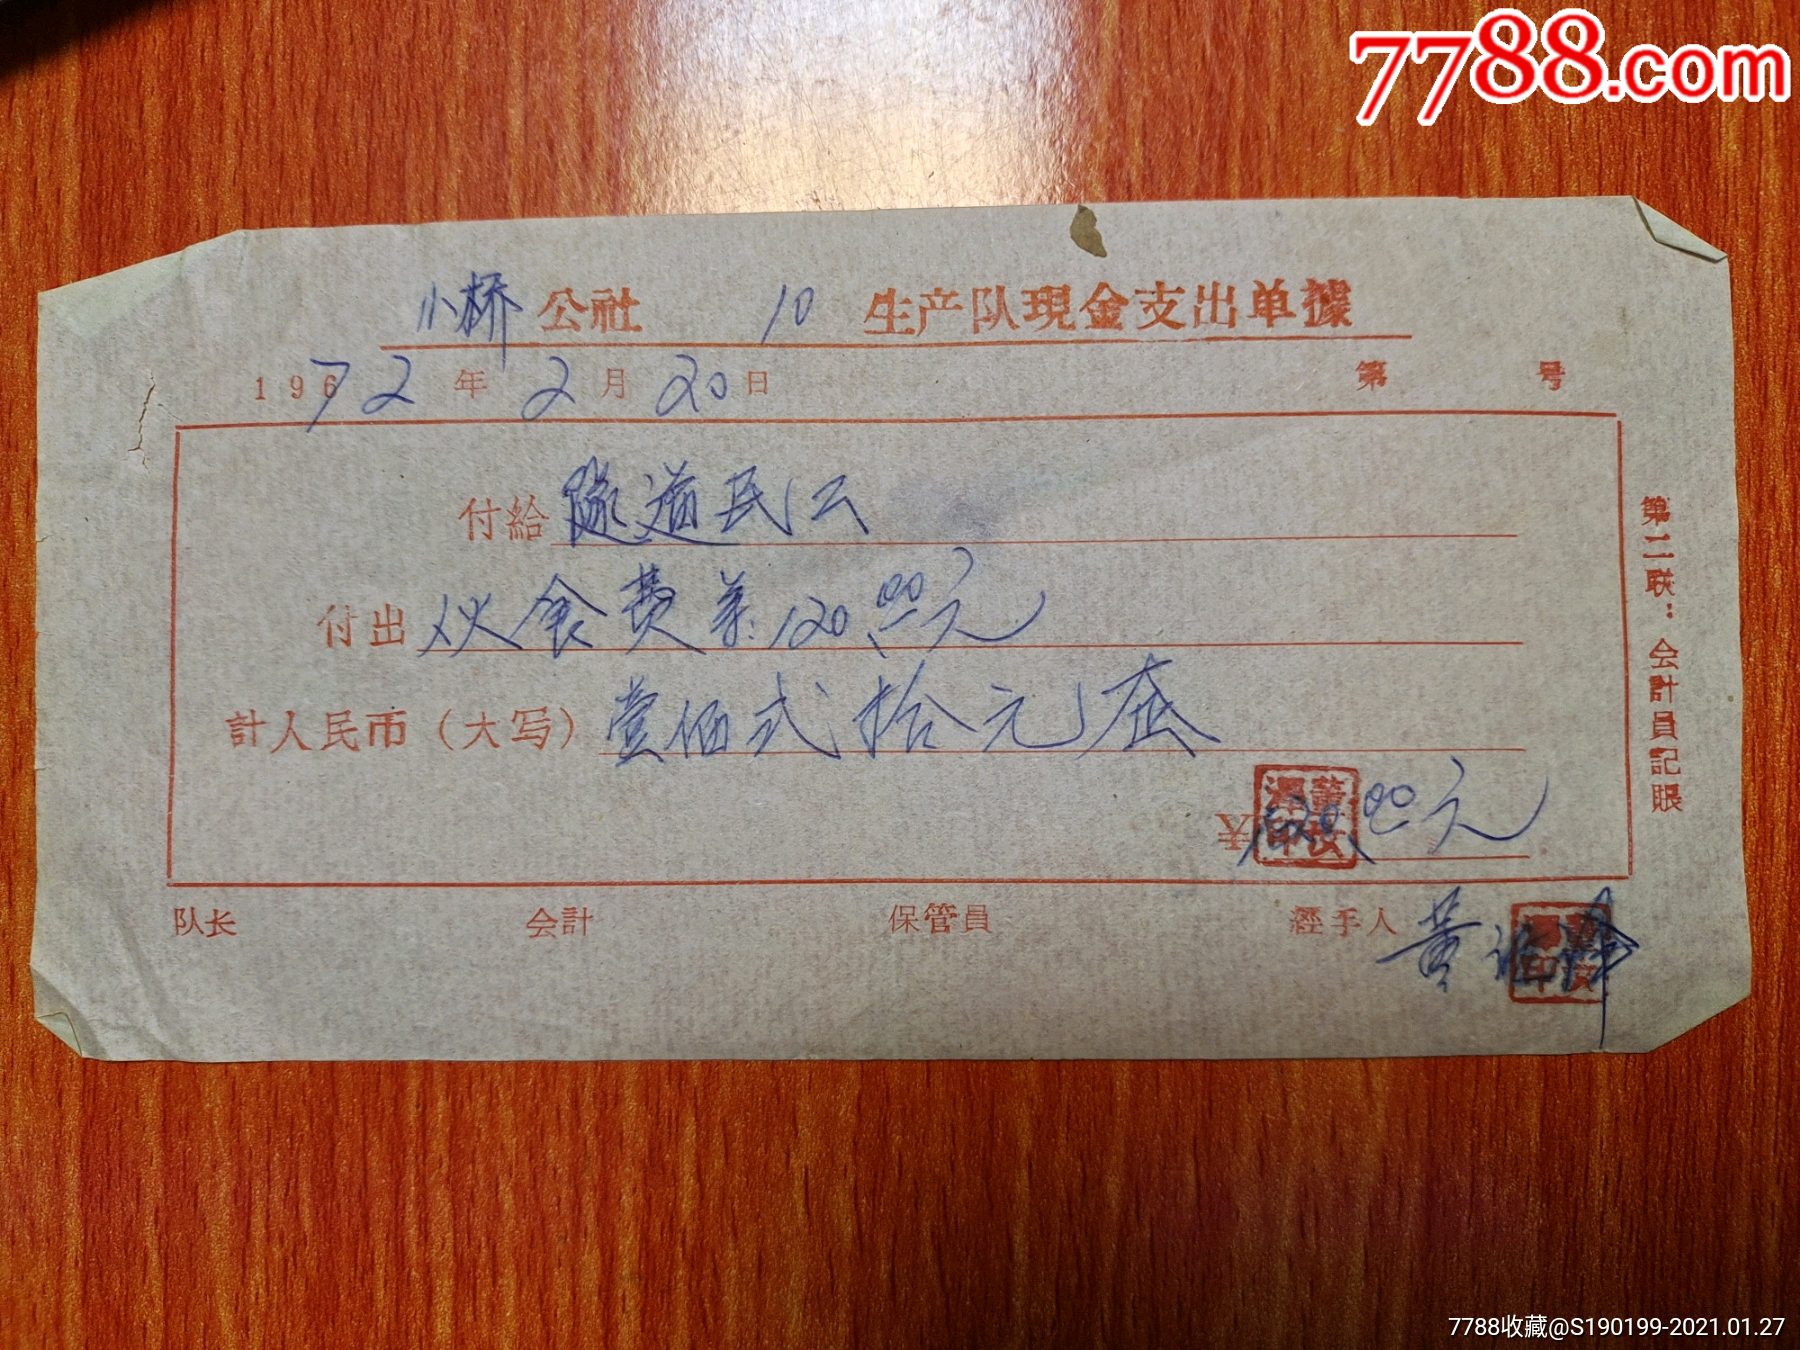 7788.com
小桥公社 10 生产队現金支出单據
1972年2月20日 第 号
付給 隧道民工
付出 伙食费 120.00元
計人民币（大写） 壹佰弍拾元
120.00元
第二联：会計員記賬
队长 会計 保管員 經手人 黄
7788收藏@S190199-2021.01.27